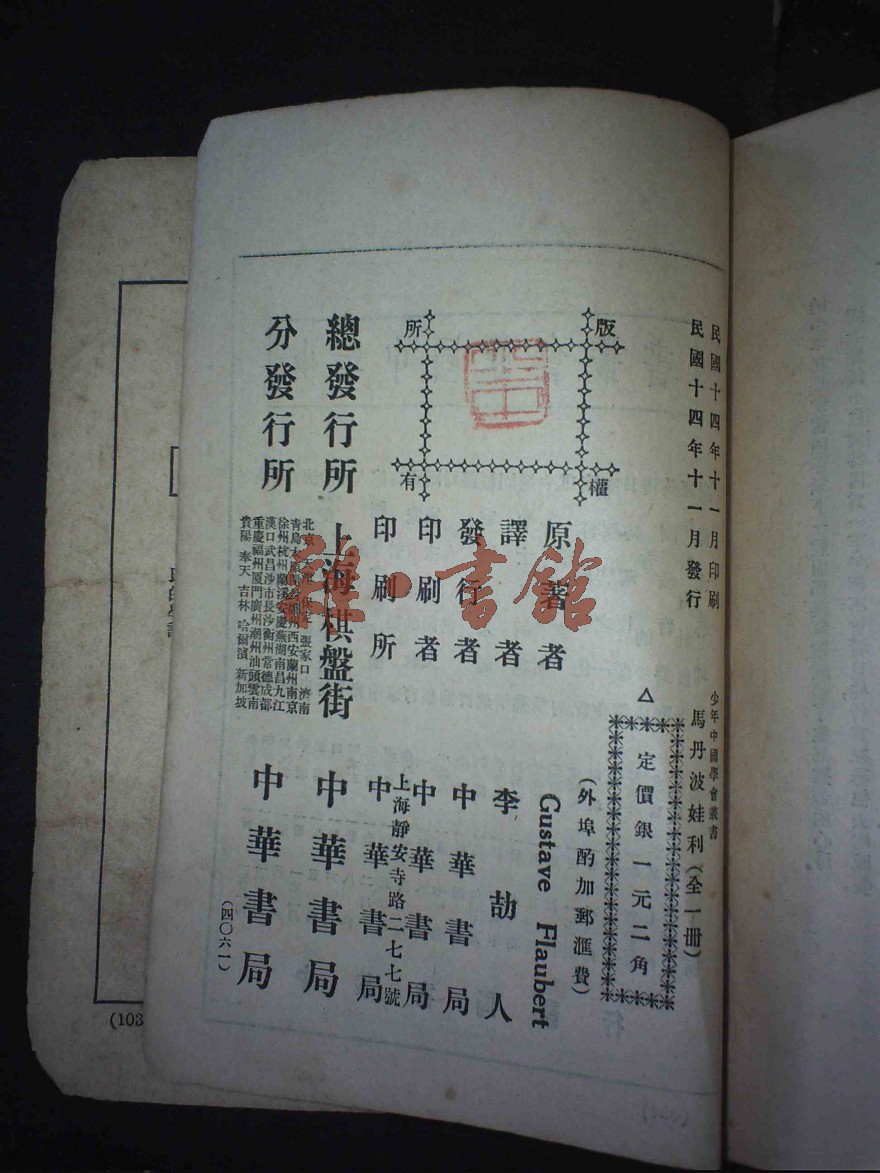 民國十四年十一月印刷
民國十四年十一月發行
少年中國學會叢書
馬丹波娃利（全一冊）
△定價銀一元二角
（外埠酌加郵滙費）
版權所有
原著者 Gustave Flaubert
譯者 李劼人
發行者 中華書局
印刷者 中華書局
上海靜安寺路二七七號
印刷所 中華書局
總發行所 上海棋盤街 中華書局
分發行所
徐州杭州蘭溪安慶蕪湖南昌九江
漢口武昌沙市長沙衡州常德成都
重慶福州厦門廣州潮州汕頭雲南
貴陽 奉天 吉林 哈爾濱 新加坡
中華書局
（四〇六一）
(103
雅·書館